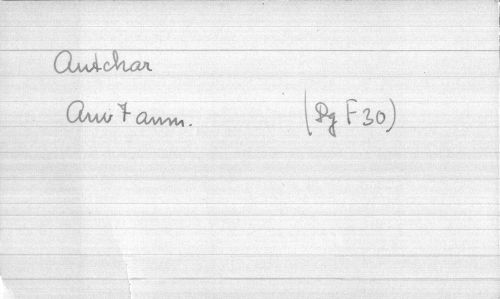 Autchar
Anv 7 anm. (Pg F 30)